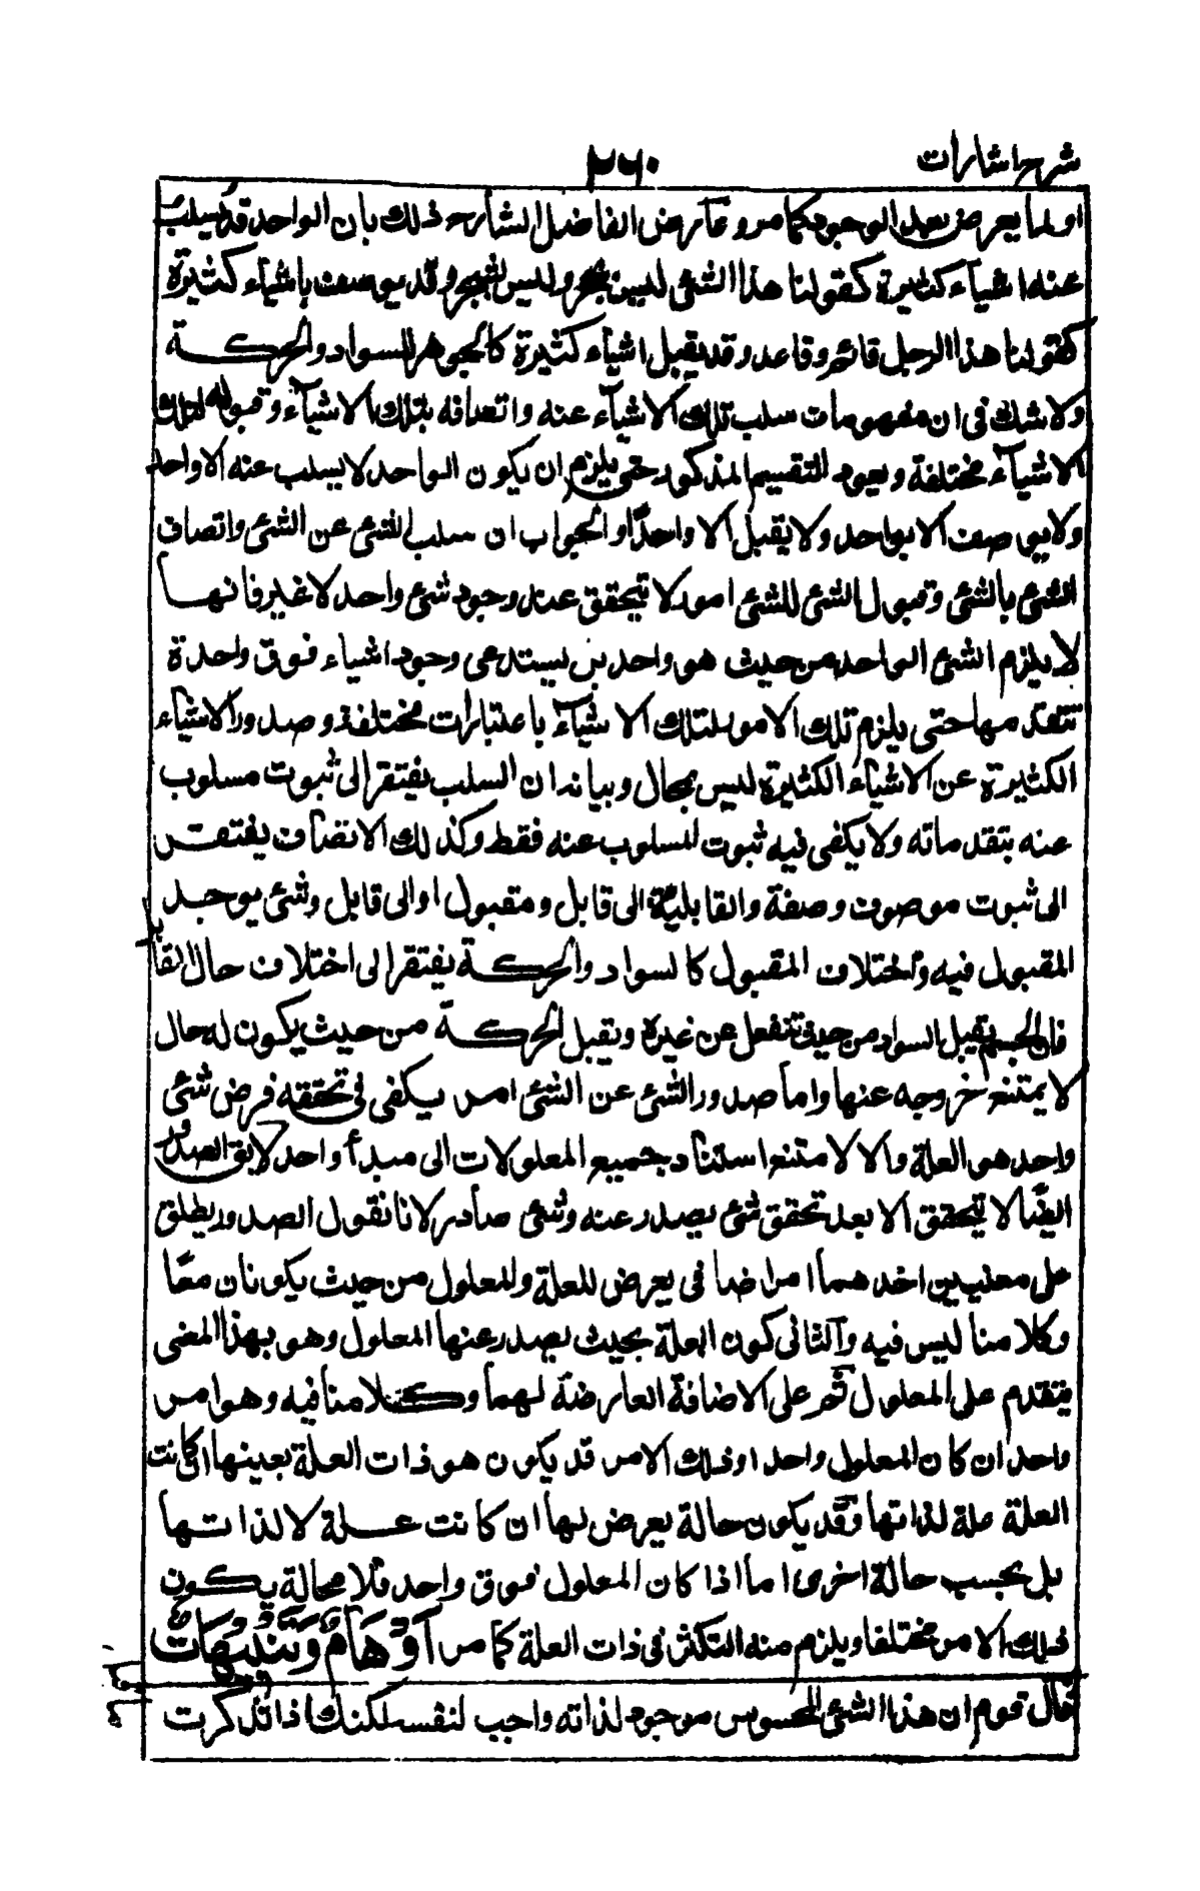 شرح اشارات
٢٦٠
او لما يعرض بعد الوجود كما مر وعارض الفاضل الشارح ذلك بان الواحد قد يسلب
عنه اشياء كثيرة كقولنا هذا الشئ ليس بحجر وليس بشجر وقد يوصف باشياء كثيرة
كقولنا هذا الرجل قائم وقاعد وقد يقبل اشياء كثيرة كالجوهر للسواد والحركة
ولا شك فى ان مفهومات سلب تلك الاشياء عنه واتصافه بتلك الاشياء وقبوله لتلك
الاشياء مختلفة ويعود التقسيم المذكور حتى يلزم ان يكون الواحد لا يسلب عنه الا واحد
ولا يوصف الا بواحد ولا يقبل الا واحدا والجواب ان سلب الشئ عن الشئ واتصاف
الشئ بالشئ وقبول الشئ للشئ امور لا تتحقق عند وجود شئ واحد لا غير فانها
لا يلزم الشئ الواحد من حيث هو واحد بل يستدعى وجود اشياء فوق واحدة
تتقدمها حتى يلزم تلك الامور لتلك الاشياء باعتبارات مختلفة وصدور الاشياء
الكثيرة عن الاشياء الكثيرة ليس بمحال وبيانه ان السلب يفتقر الى ثبوت مسلوب
عنه يتقدمانه ولا يكفى فيه ثبوت المسلوب عنه فقط وكذلك الاتصاف يفتقر
الى ثبوت موصوف وصفة والقابلية الى قابل ومقبول او الى قابل وشئ يوجد
المقبول فيه واختلاف المقبول كالسواد والحركة يفتقر الى اختلاف حال القابل
فان الجسم يقبل السواد من حيث تنفعل عن غيره ويقبل الحركة من حيث يكون له حال
لا يمتنع خروجه عنها واما صدور الشئ عن الشئ امر يكفى فى تحققه فرض شئ
واحد هو العلة والا لامتنع استناد جميع المعلولات الى مبدأ واحد لا يق الصدور
ايضا لا يتحقق الا بعد تحقق شئ يصدر عنه وشئ صادر لانا نقول الصدور يطلق
على معنيين احدهما امر اضافى يعرض للعلة والمعلول من حيث يكونان معا
وكلامنا ليس فيه والثانى كون العلة بحيث يصدر عنها المعلول وهو بهذا المعنى
متقدم على المعلول ثم على الاضافة العارضة لهما وكلامنا فيه وهو امر
واحد ان كان المعلول واحدا وذلك الامر قد يكون هو ذات العلة بعينها ان كانت
العلة علة لذاتها وقد يكون حالة يعرض لها ان كانت علة لا لذاتها
بل بحسب حالة اخرى اما اذا كان المعلول فوق واحد فلا محالة يكون
ذلك الامر مختلفا ويلزم منه التكثر فى ذات العلة كما مر اَوْهَامٌ وَتَنْبِيهَاتٌ
قال قوم ان هذا الشئ المحسوس موجود لذاته واجب لنفسه لكنك اذا تذكرت